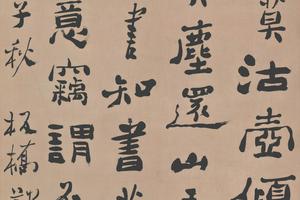 沽壺傾
塵還山
書知書
意竊謂
子秋 板橋